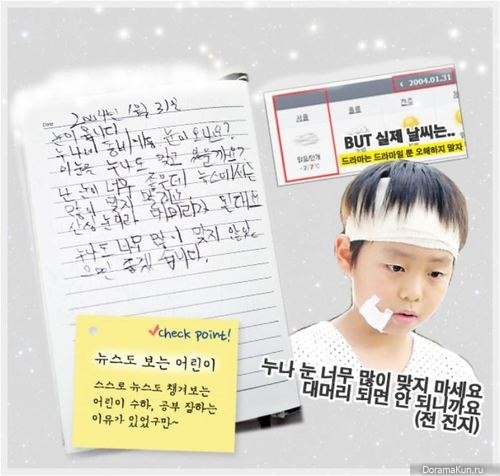 Date
2004년 1월 31일
눈이 옵니다
누나네 동네에도 눈이 오나요?
이 눈을 누나도
난 눈이 너무 좋은데 뉴스에서는
많이 맞지 말래요
산성눈이라 대머리가 된대요
누나도 너무 많이 맞지 않았
으면 좋겠습니다.
< 2004.01.31
서울
-2/7℃
BUT 실제 날씨는..
드라마는 드라마일 뿐 오해하지 말자
check point!
뉴스도 보는 어린이
스스로 뉴스도 챙겨보는
어린이 수하, 공부 잘하는
이유가 있었구만~
누나 눈 너무 많이 맞지 마세요
대머리 되면 안 되니까요
(전 진지)
DoramaKun.ru